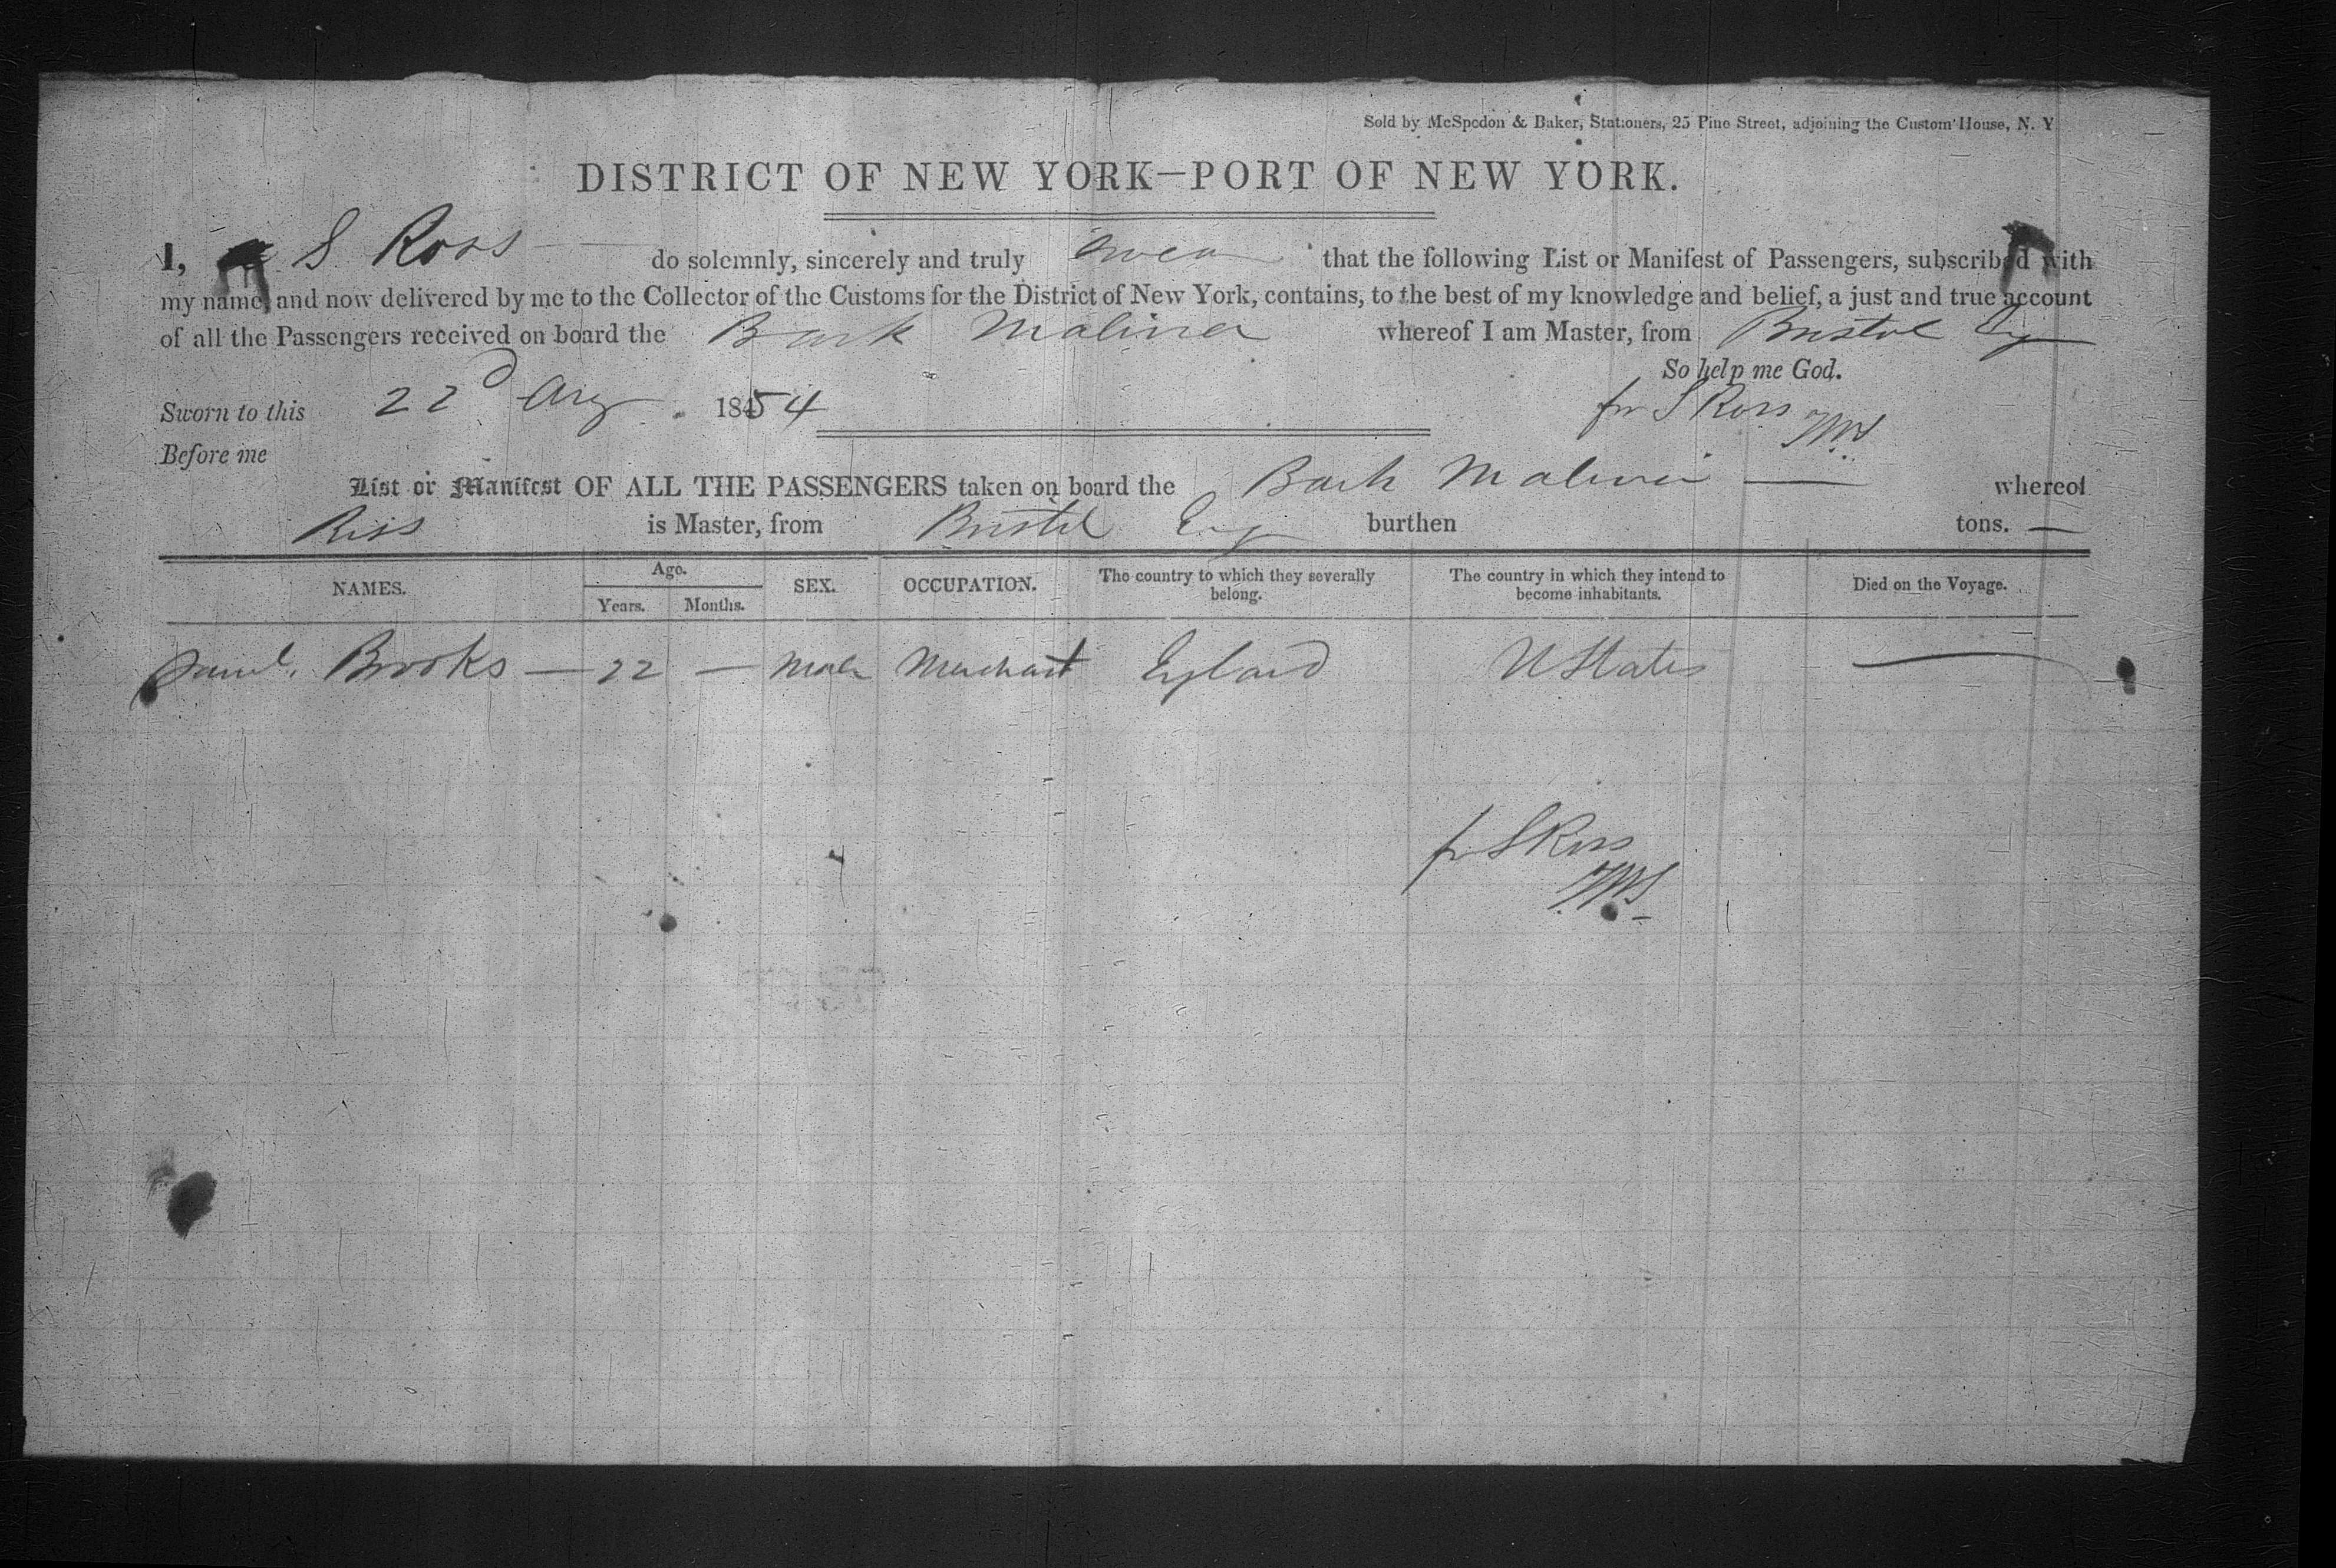 Sold by McSpedon & Baker, Stationers, 25 Pine Street, adjoining the Custom House, N. Y.
DISTRICT OF NEW YORK—PORT OF NEW YORK.
I, S Ross do solemnly, sincerely and truly swear that the following List or Manifest of Passengers, subscribed with
my name, and now delivered by me to the Collector of the Customs for the District of New York, contains, to the best of my knowledge and belief, a just and true account
of all the Passengers received on board the Bark Malvina whereof I am Master, from Bristol Eng
So help me God.
Sworn to this 22d Aug 1854 for S Ross
Before me
List or Manifest OF ALL THE PASSENGERS taken on board the Bark Malvina — whereof
Ross is Master, from Bristol Eng burthen tons. —
NAMES. Age. Years. Months. SEX. OCCUPATION. The country to which they severally belong. The country in which they intend to become inhabitants. Died on the Voyage.
Saml. Brooks — 22 — Male Merchant England U States —
for S Ross